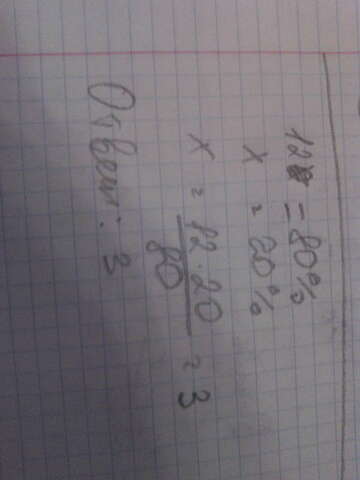 12 = 80%
x = 20%
x = 12 · 20 / 80 = 3
Ответ: 3